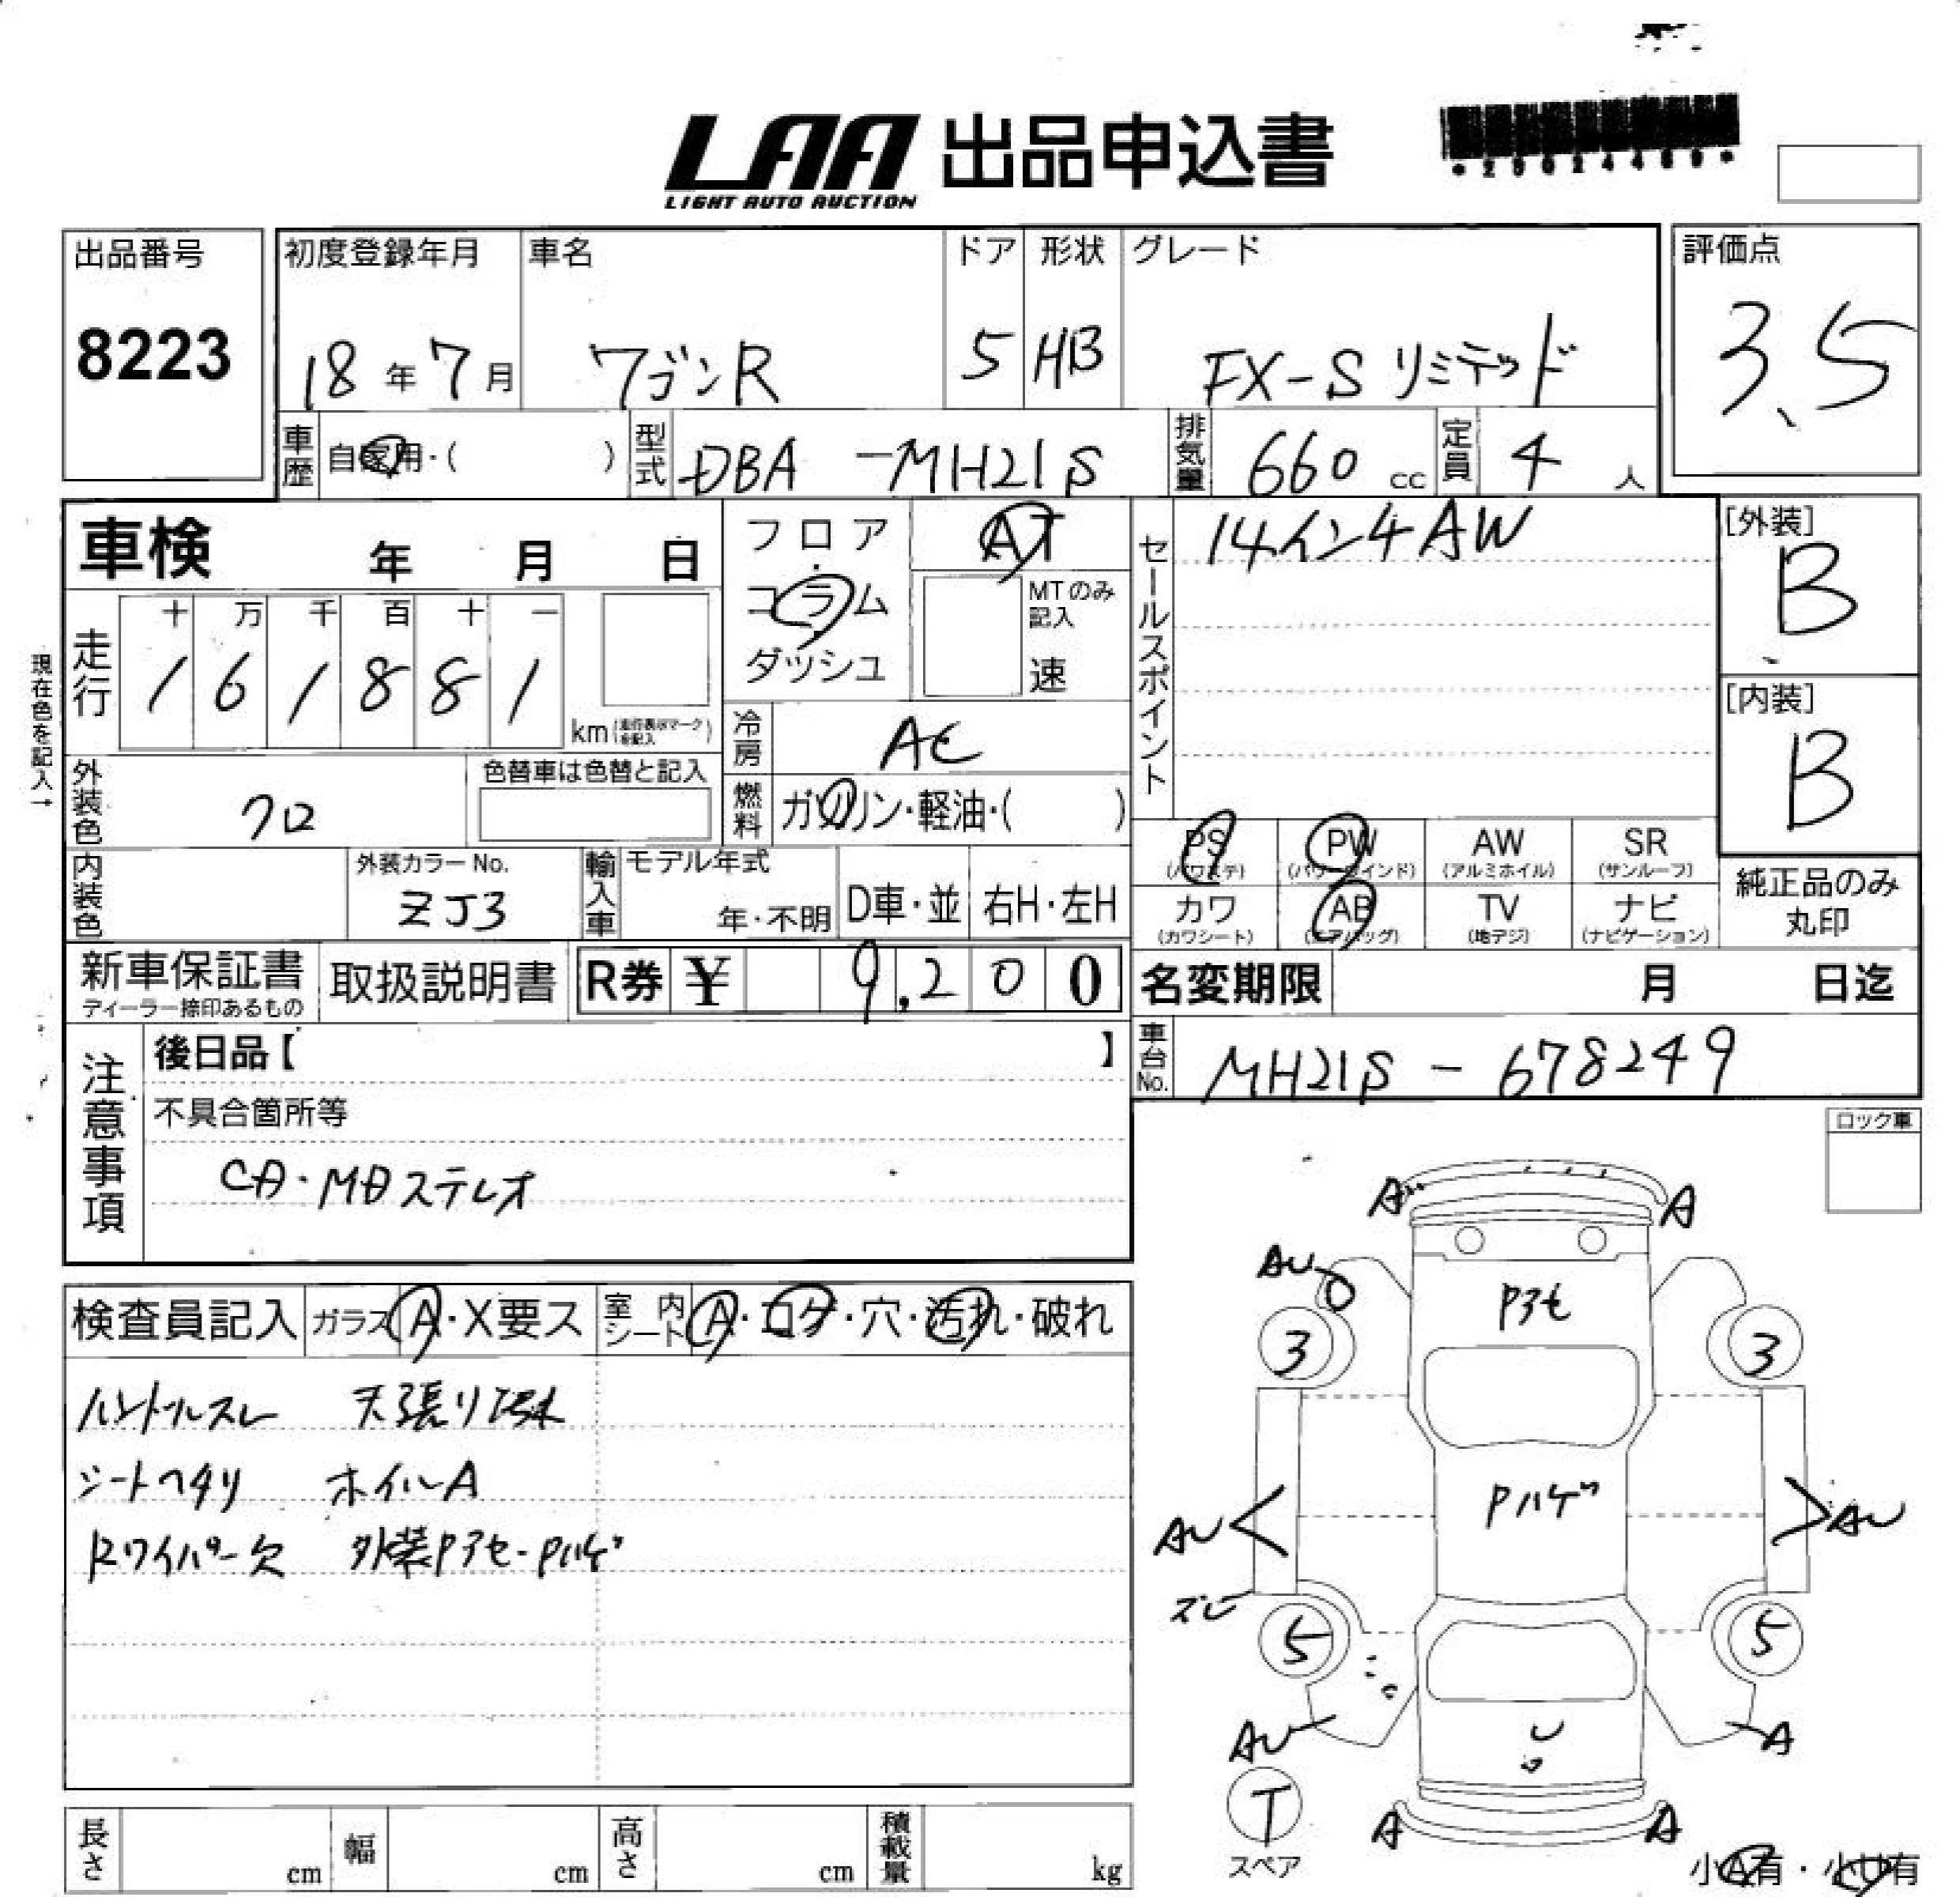 LAA 出品申込書
LIGHT AUTO AUCTION
*29024469*
出品番号
8223
初度登録年月
18年7月
車名
ワゴンR
ドア
5
形状
HB
グレード
FX-Sリミテッド
評価点
3.5
車歴
自家用・( )
型式
DBA -MH21S
排気量
660 cc
定員
4 人
車検 年 月 日
現在色を記入→
走行
十 万 千 百 十 一
1 6 1 8 8 1
km (走行表示マークを記入)
フロア
コラム
ダッシュ
AT
MTのみ記入
速
冷房
AC
燃料
ガソリン・軽油・( )
セールスポイント
14インチAW
[外装]
B
[内装]
B
外装色
クロ
色替車は色替と記入
内装色
外装カラーNo.
ZJ3
輸入車
モデル年式
年・不明
D車・並
右H・左H
PS
(パワステ)
PW
(パワーウインド)
AW
(アルミホイル)
SR
(サンルーフ)
カワ
(カワシート)
AB
(エアバッグ)
TV
(地デジ)
ナビ
(ナビゲーション)
純正品のみ
丸印
新車保証書
ディーラー捺印あるもの
取扱説明書
R券 ¥ 9,200
名変期限 月 日迄
車台No.
MH21S - 678249
注意事項
後日品【 】
不具合箇所等
CD・MDステレオ
ロック車
検査員記入
ガラス A・X要ス
室内シート A・コゲ・穴・汚れ・破れ
ハンドルスレ 天張り汚れ
シートヘタリ ホイルA
Rワイパー欠 外装Pアセ・Pハゲ
A A
AU
Pアセ
3 3
Pハゲ
AU AU
ズレ
5 5
AU A
U
T
スペア
A A
小A有・小U有
長さ cm
幅 cm
高さ cm
積載量 kg